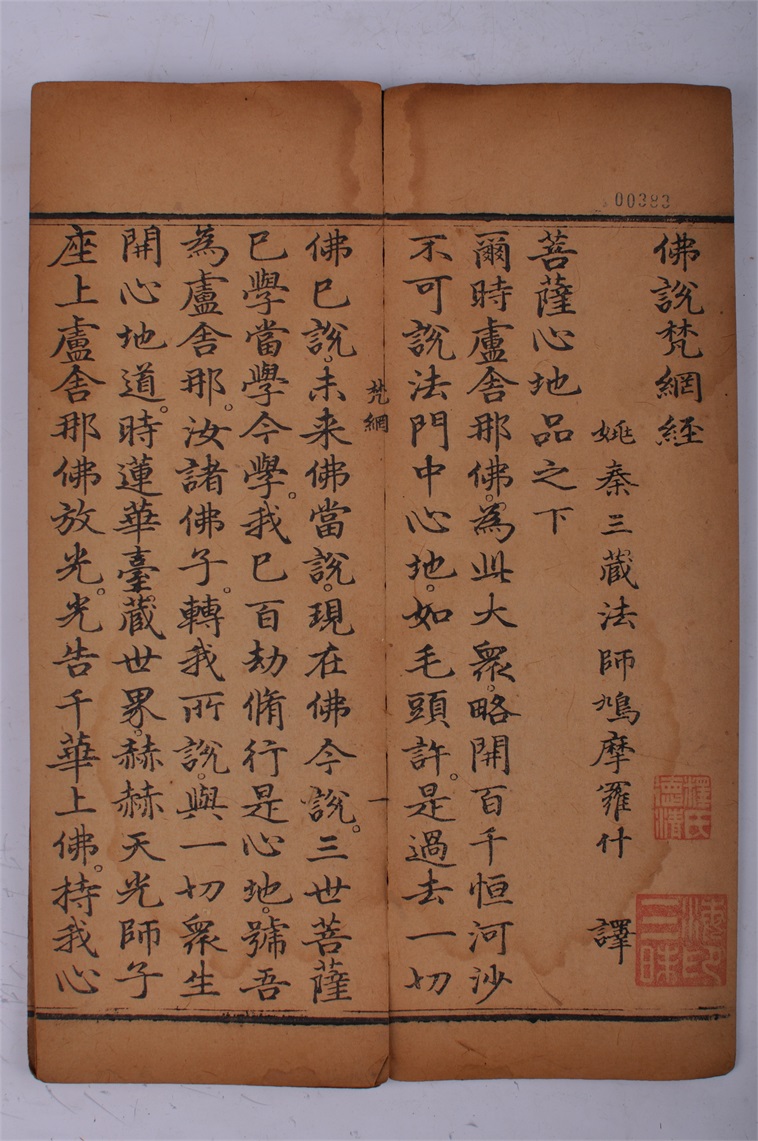 00383
佛說梵網經
姚秦三藏法師鳩摩羅什 譯
菩薩心地品之下
爾時盧舍那佛。為此大眾。略開百千恒河沙
不可說法門中心地。如毛頭許。是過去一切
梵網 一
佛已說。未来佛當說。現在佛今說。三世菩薩
已學當學今學。我已百劫脩行是心地。號吾
為盧舍那。汝諸佛子。轉我所說。與一切眾生
開心地道。時蓮華臺藏世界。赫赫天光師子
座上盧舍那佛放光。光告千華上佛。持我心
釋氏德清
海印三昧